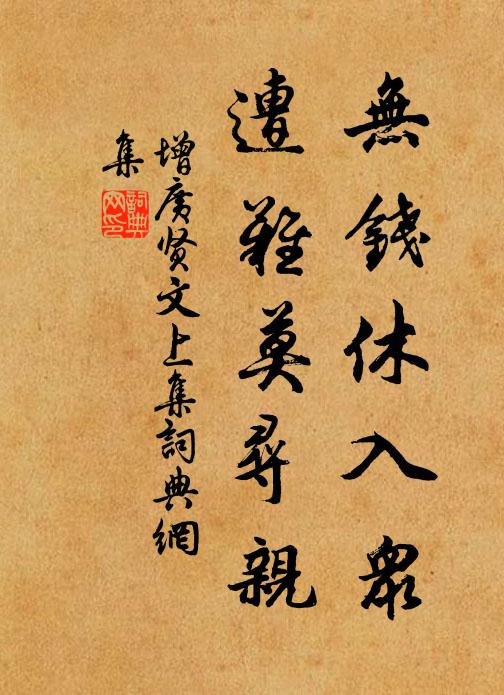 無錢休入衆
遭難莫尋親
增广贤文上集詞典網
集
詞典
网印